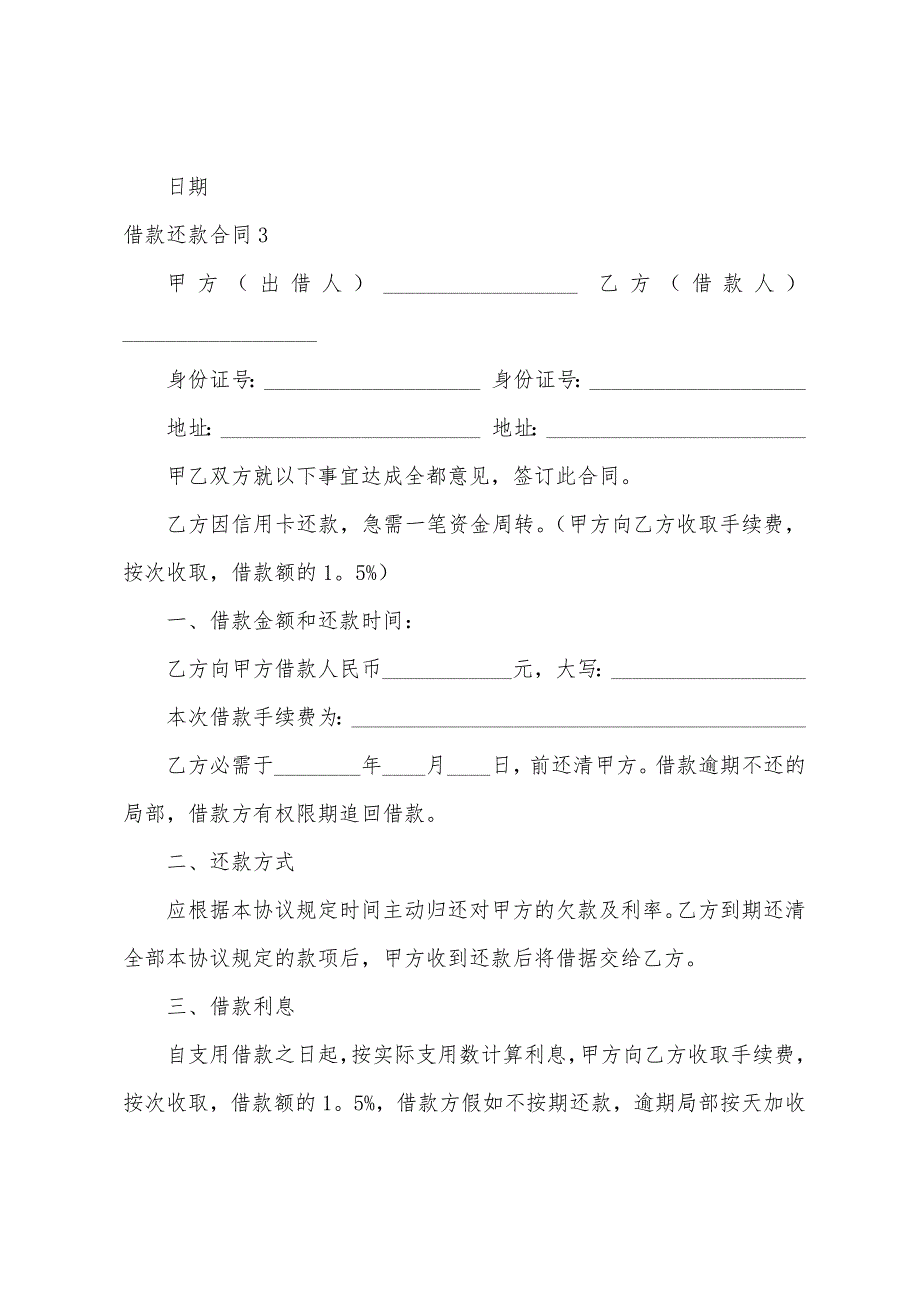 日期
借款还款合同3
甲方（出借人）__________________ 乙方（借款人）
__________________
身份证号：____________________ 身份证号：____________________
地址：________________________ 地址：________________________
甲乙双方就以下事宜达成全都意见，签订此合同。
乙方因信用卡还款，急需一笔资金周转。（甲方向乙方收取手续费，
按次收取，借款额的1。5%）
一、借款金额和还款时间：
乙方向甲方借款人民币____________元，大写：__________________
本次借款手续费为：__________________________________________
乙方必需于________年____月____日，前还清甲方。借款逾期不还的
局部，借款方有权限期追回借款。
二、还款方式
应根据本协议规定时间主动归还对甲方的欠款及利率。乙方到期还清
全部本协议规定的款项后，甲方收到还款后将借据交给乙方。
三、借款利息
自支用借款之日起，按实际支用数计算利息，甲方向乙方收取手续费，
按次收取，借款额的1。5%，借款方假如不按期还款，逾期局部按天加收